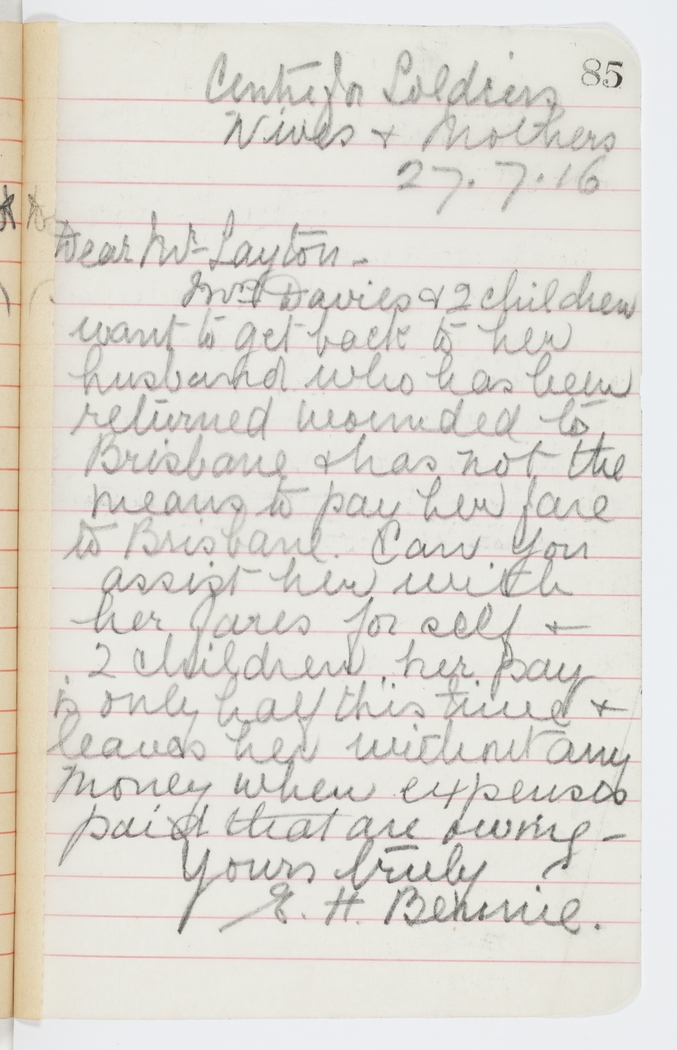 85
Centre for Soldiers
Wives & Mothers
27.7.16
Dear Mr Layton -
Mrs Davies & 2 children
want to get back to her
husband who has been
returned wounded to
Brisbane & has not the
means to pay her fare
to Brisbane. Can you
assist her with
her fares for self &
2 children, her pay
is only half this time &
leaves her without any
money when expenses
paid that are owing -
Yours truly
E. H. Bennie.